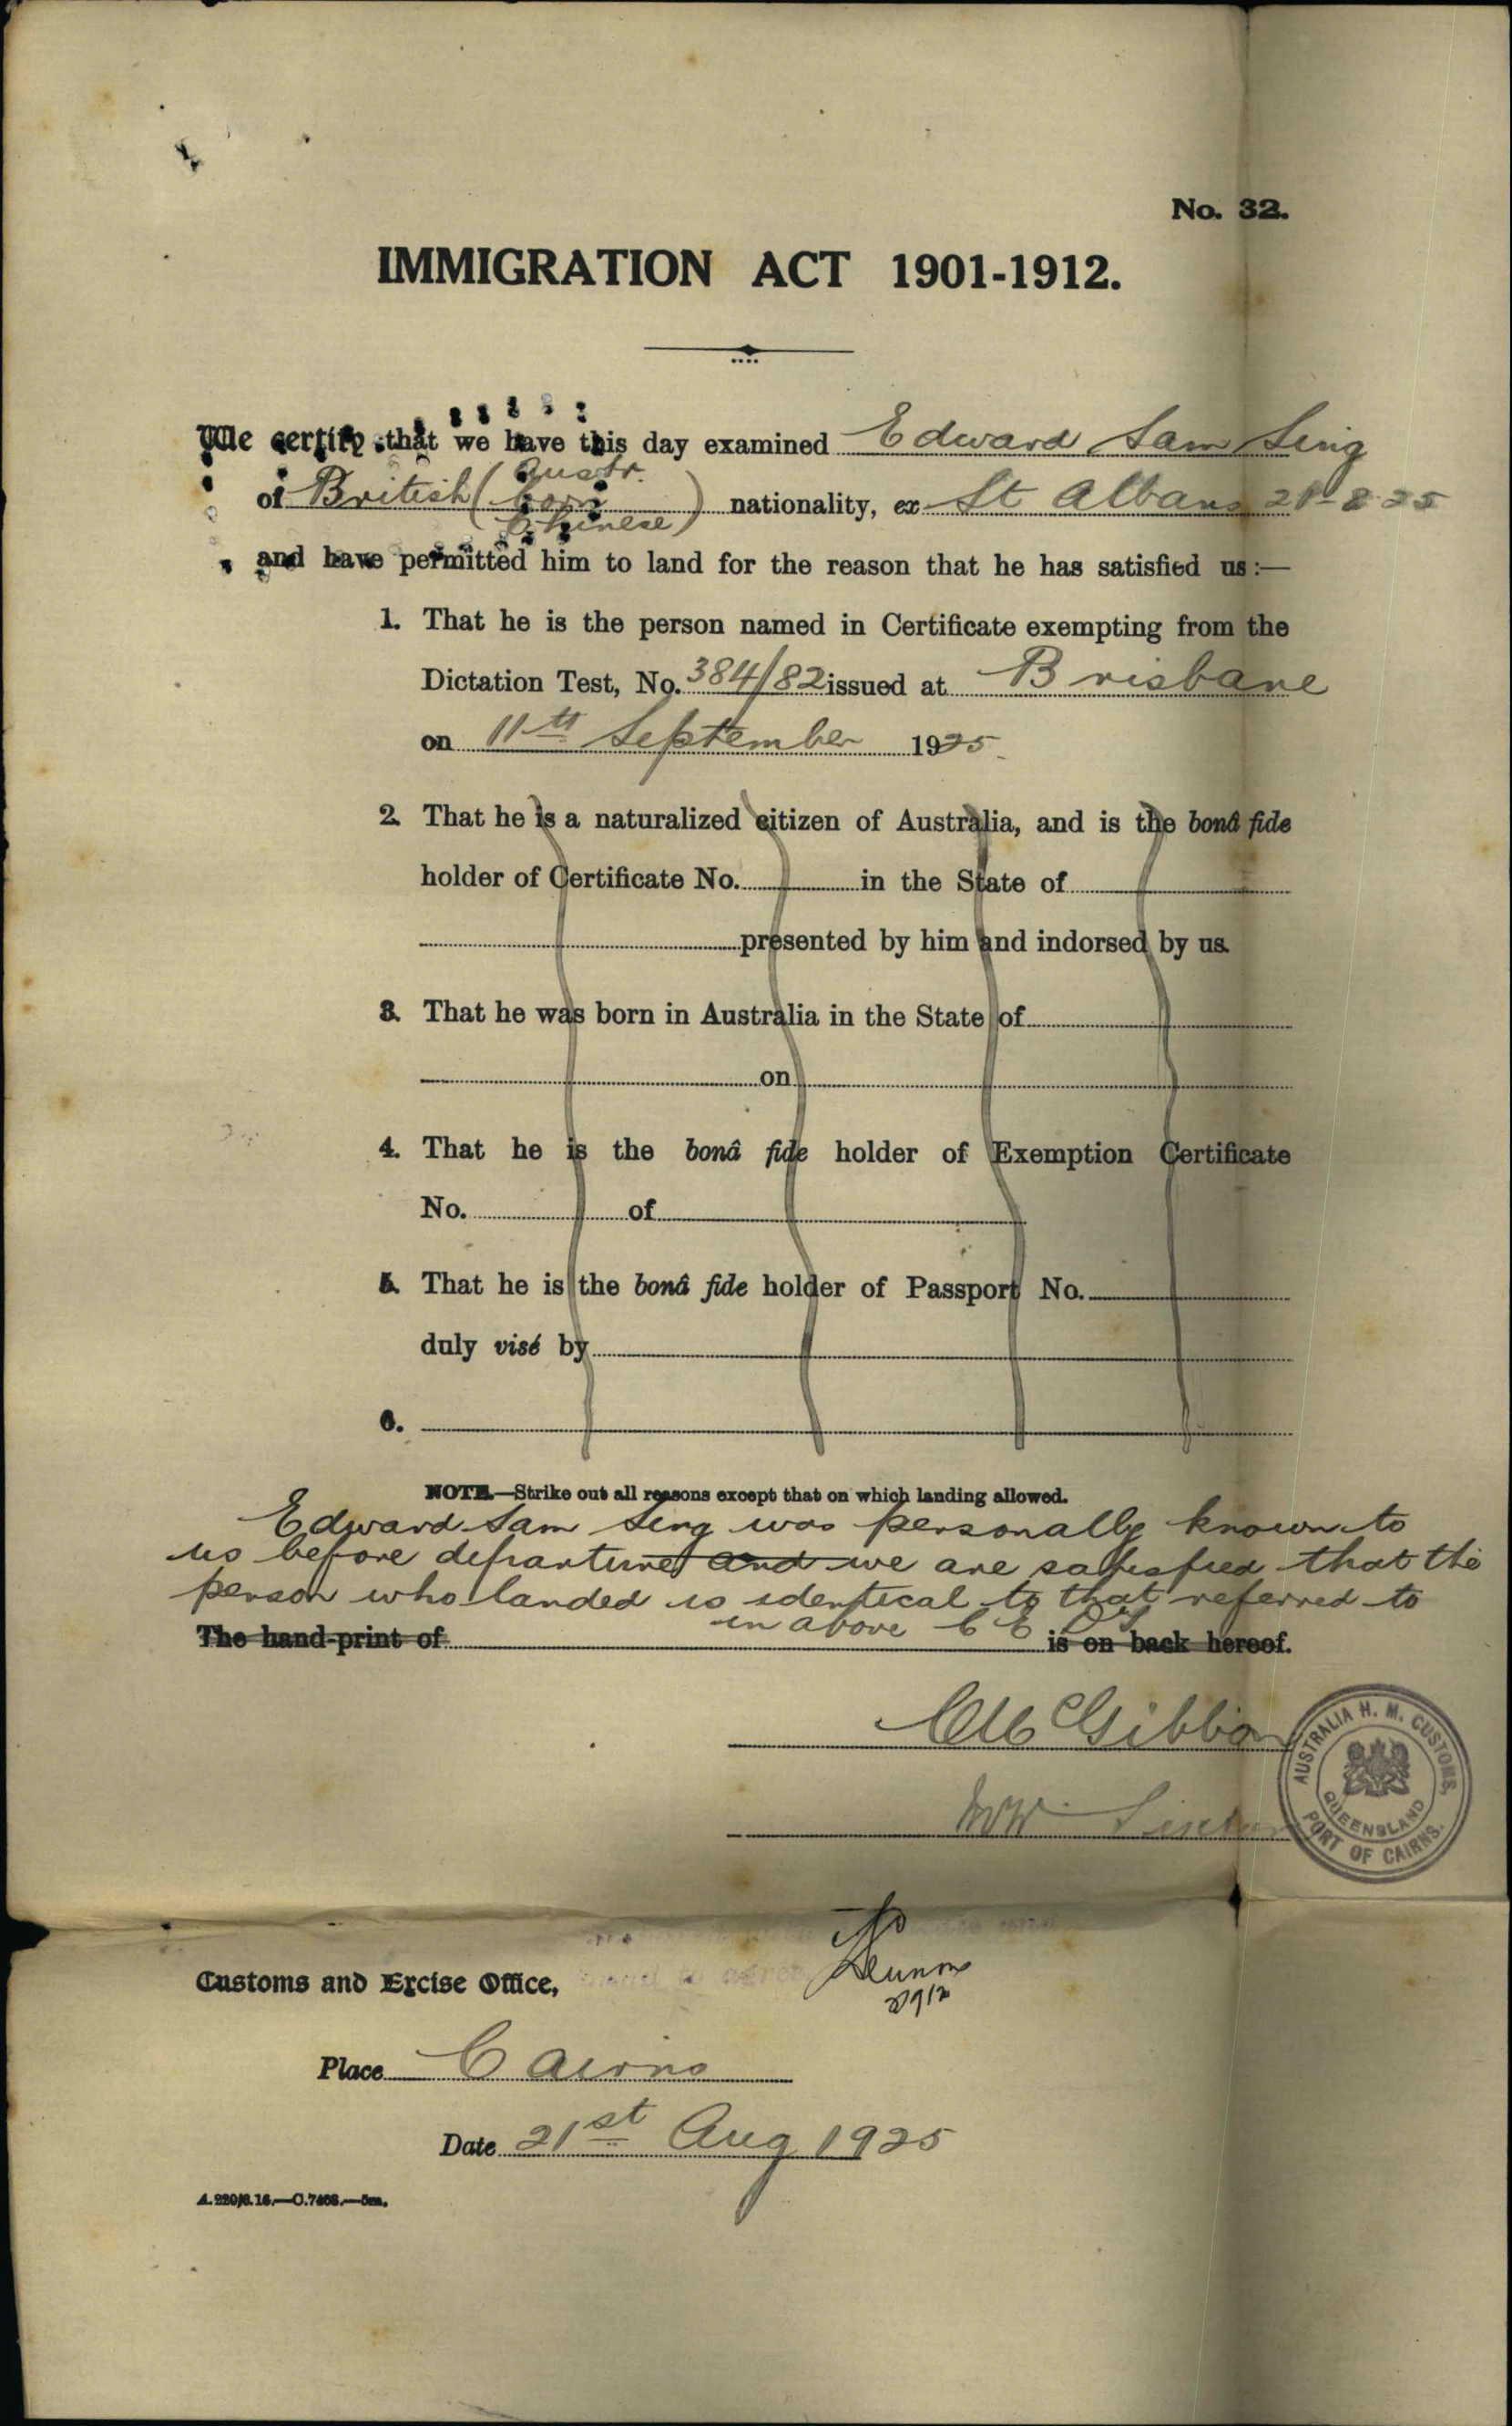 No. 32.
IMMIGRATION ACT 1901-1912.
We certify that we have this day examined Edward Sam Sing
of British ( Austr. born Chinese ) nationality, ex St Albans 21-8-25
and have permitted him to land for the reason that he has satisfied us:—
1. That he is the person named in Certificate exempting from the
Dictation Test, No. 384/82 issued at Brisbane
on 11th September 1925.
2. That he is a naturalized citizen of Australia, and is the bonâ fide
holder of Certificate No. in the State of
presented by him and indorsed by us.
3. That he was born in Australia in the State of
on
4. That he is the bonâ fide holder of Exemption Certificate
No. of
5. That he is the bonâ fide holder of Passport No.
duly visé by
6.
NOTE.—Strike out all reasons except that on which landing allowed.
Edward Sam Sing was personally known to
us before departure and we are satisfied that the
person who landed is identical to that referred to
in above C E D T
The hand-print of is on back hereof.
McGibbon
WW
AUSTRALIA H. M. CUSTOMS,
QUEENSLAND
PORT OF CAIRNS.
Customs and Excise Office,
Place Cairns
Date 21st Aug 1925